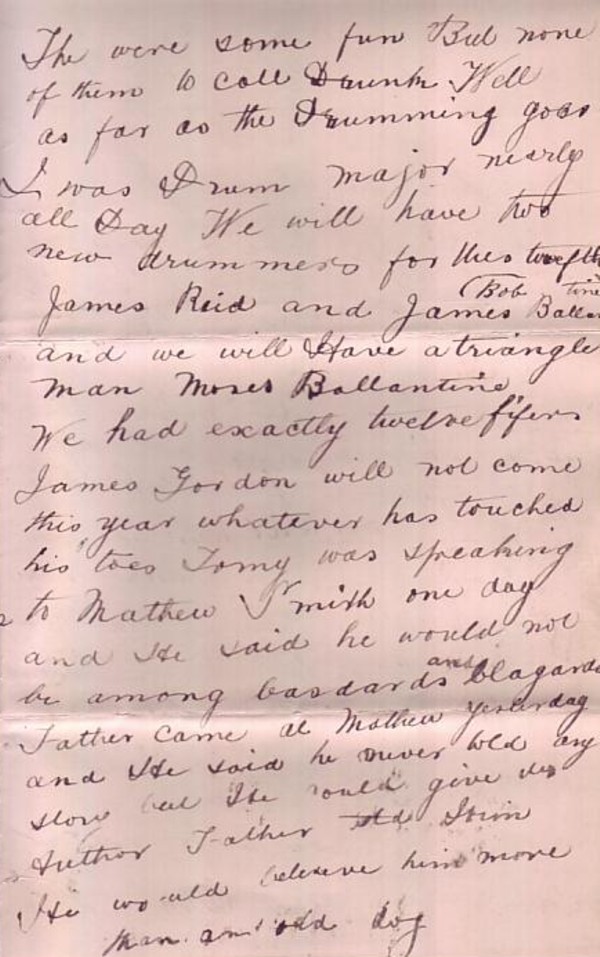 The were some fun But none
of them to call Drunk Well
as far as the Drumming goes
I was Drum major nearly
all Day We will have two
new drummers for this twelfth
James Reid and James (Bob Ballantine
and we will Have a triangle
man Moses Ballantine
We had exactly twelve fifers
James Gordon will not come
this year whatever has touched
his toes Tomy was speaking
to Mathew Smith one day
and He said he would not
be among basdards and blagards
Father came at Mathew yesterday
and He said he never told any
story but He could give
Author Father told Him
He would beleive him more
than an odd dog